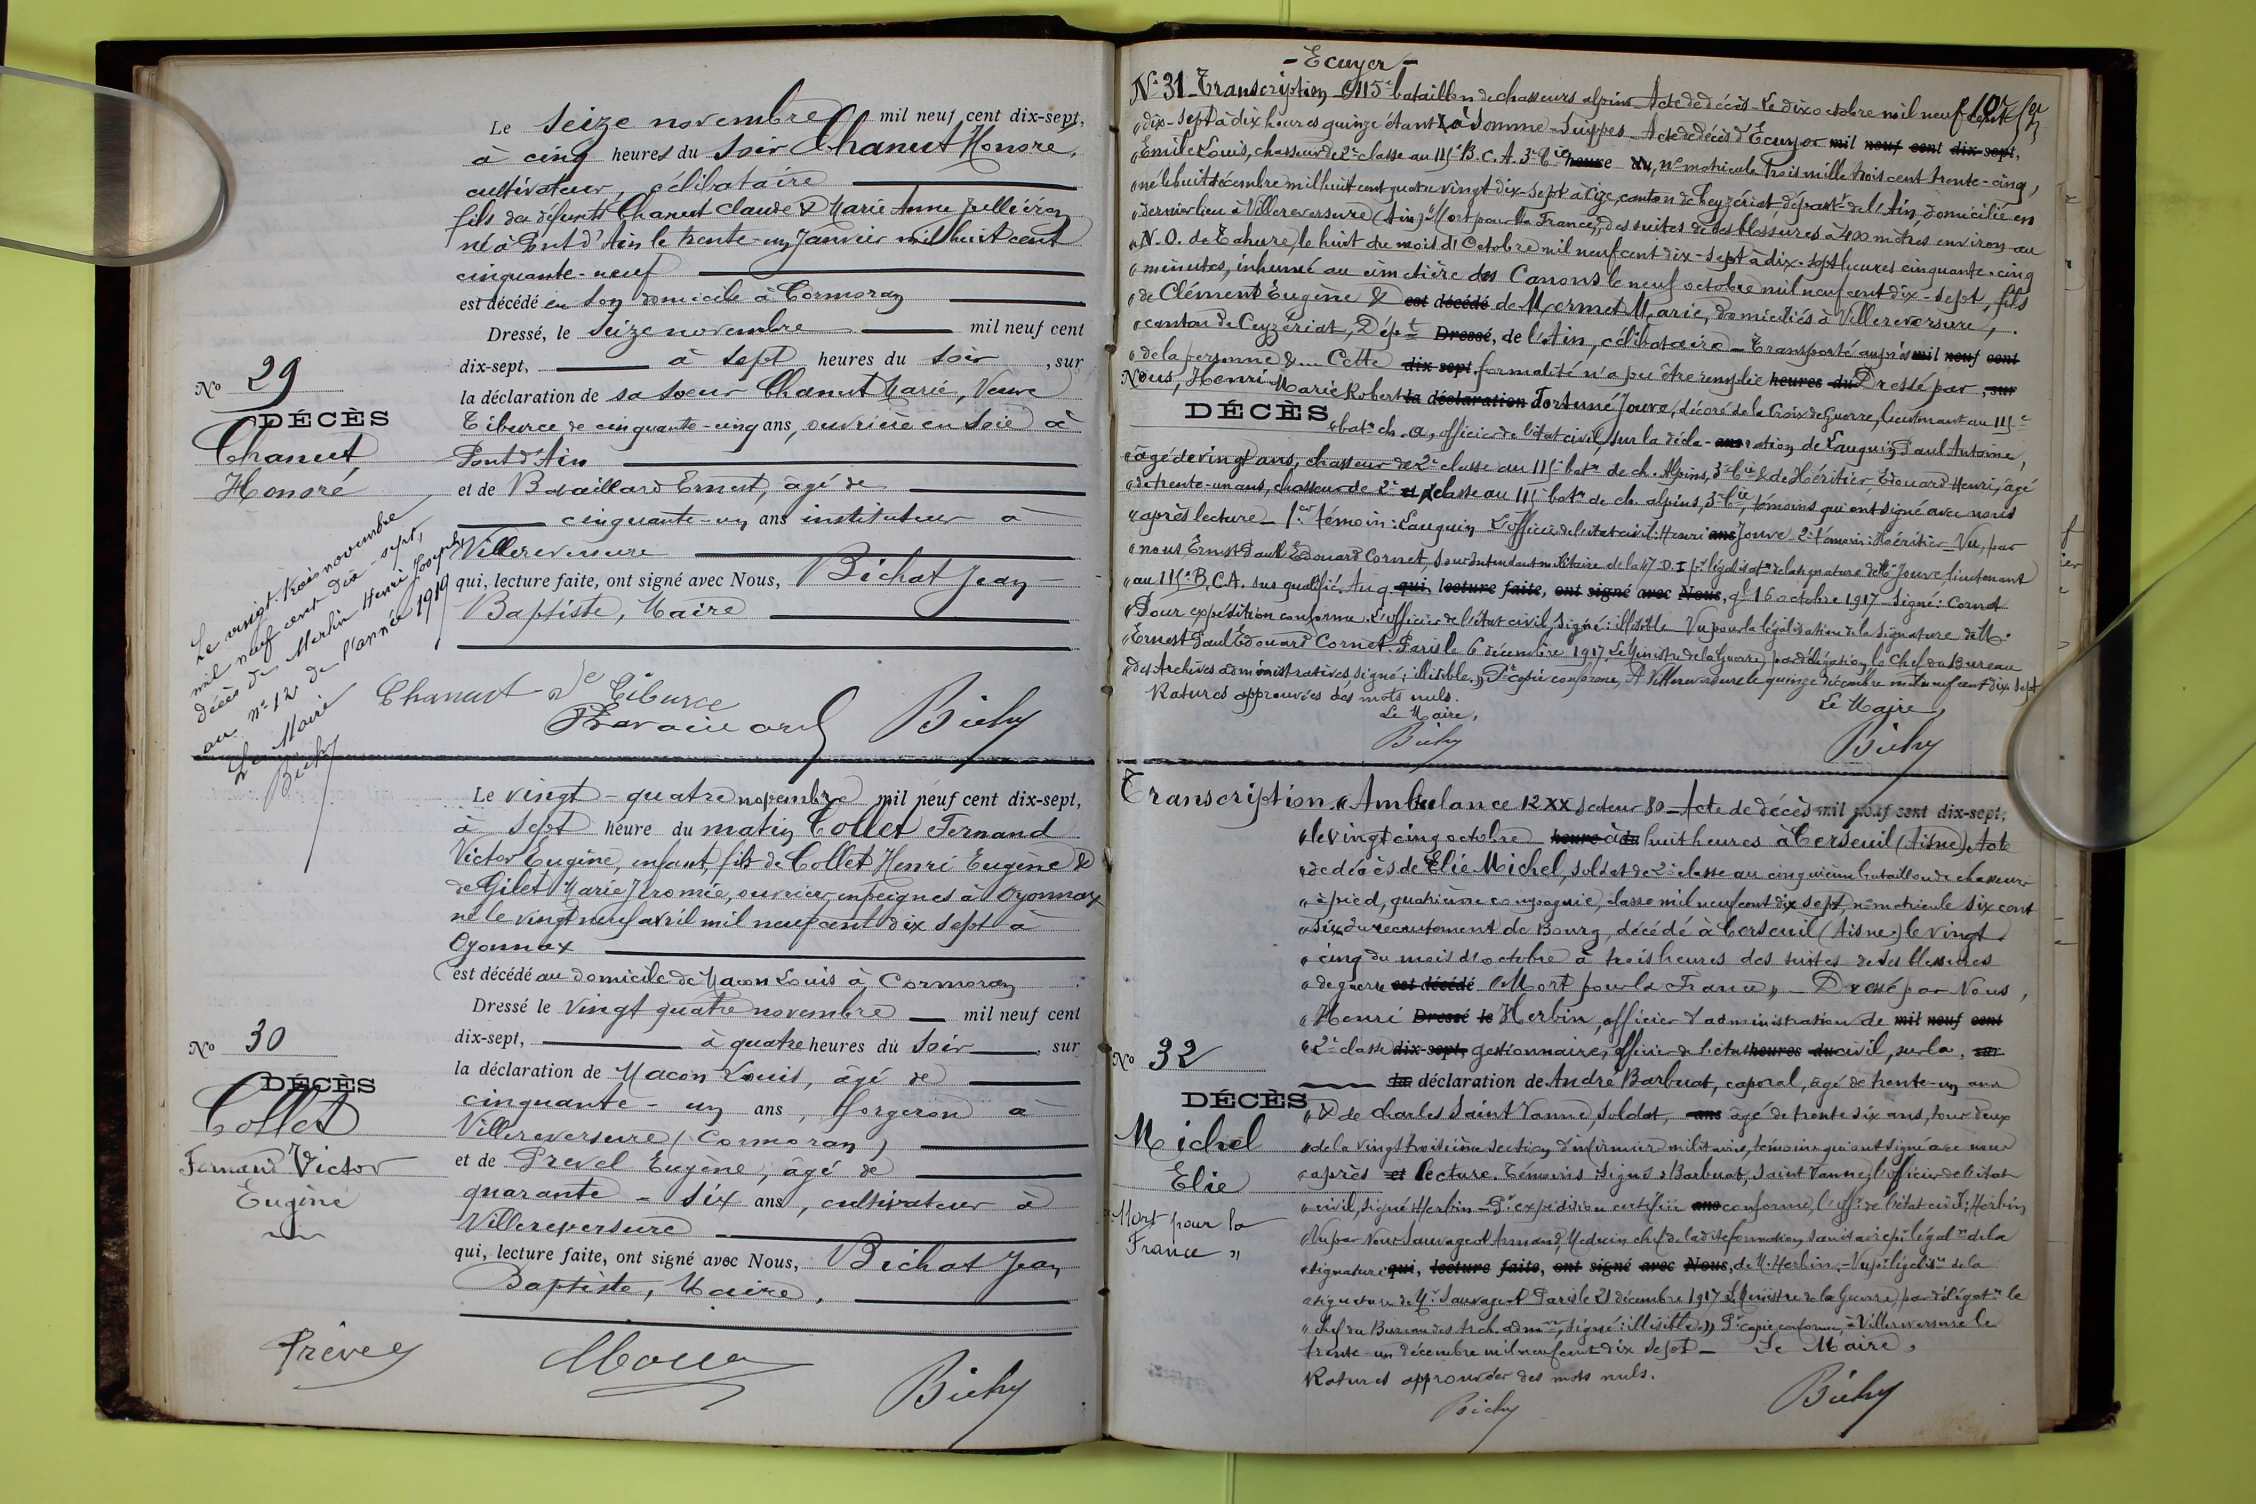 Le seize novembre mil neuf cent dix-sept,
à cinq heures du soir Chanut Honoré,
cultivateur, célibataire
fils des défunts Chanut Claude & Marie Anne
né à Pont d'Ain le trente-un Janvier mil huit cent
cinquante-neuf
est décédé en son domicile à Cormoran
Dressé, le seize novembre mil neuf cent
dix-sept, à sept heures du soir, sur
No 29
DÉCÈS
Chanut
Honoré
la déclaration de sa soeur Chanut Marie, Veuve
Tiburce de cinquante-cinq ans, ouvrière en soie à
Pont d'Ain
et de Bavaillard Ernest, âgé de
cinquante-un ans instituteur à
Villereversure
qui, lecture faite, ont signé avec Nous, Bichat Jean
Baptiste, Maire
Le vingt-trois novembre
mil neuf cent dix-sept,
décès de Merlin Henri Joseph,
au n° 12 de l'année 1919
Le Maire
Bichat
Chanut Ve Tiburce
Bavaillard Bichat
Le vingt-quatre novembre mil neuf cent dix-sept,
à sept heure du matin Collet Fernand
Victor Eugène, enfant, fils de Collet Henri Eugène &
de Gilet Marie, ouvrier en peignes à Oyonnax
né le vingt neuf avril mil neuf cent dix sept à
Oyonnax
est décédé au domicile de Macon Louis à Cormoran
Dressé le vingt quatre novembre mil neuf cent
dix-sept, à quatre heures du soir, sur
No 30
DÉCÈS
Collet
Fernand Victor
Eugène
la déclaration de Macon Louis, âgé de
cinquante-un ans, forgeron à
Villereversure (Cormoran)
et de Prevel Eugène, âgé de
quarante-six ans, cultivateur à
Villereversure
qui, lecture faite, ont signé avec Nous, Bichat Jean
Baptiste, Maire,
Prevel Macon Bichat
- Ecuyer -
N° 31 Transcription 115e bataillon de chasseurs alpins Acte de décès - Le dix octobre mil neuf cent
"dix-sept à dix heures quinze étant à Somme-Suippes Acte de décès d'Ecuyer mil neuf cent dix-sept,
"Emile Louis, chasseur de 2e classe au 115e B.C.A. 3e Cie heure du, n° matricule trois mille trois cent trente-cinq,
"né le huit décembre mil huit cent quatre vingt dix-sept à Cize, canton de Ceyzériat départt de l'Ain domicilié en
"dernier lieu à Villereversure (Ain) "Mort pour la France", des suites de ses blessures à 400 mètres environ au
"N.O. de Tahure, le huit du mois d'Octobre mil neuf cent dix-sept à dix-sept heures cinquante-cinq
"minutes, inhumé au cimetière des Canons le neuf octobre mil neuf cent dix-sept, fils
"de Clément Eugène & est décédé de Mermet Marie, domiciliés à Villereversure,
"canton de Ceyzériat, Dépt Dressé, de l'Ain, célibataire - Transporté auprès mil neuf cent
"de la personne &... Cette dix sept, formalité n'a pu être remplie heures du Dressé par, sur
Nous, Henri Marie Robert la déclaration Fortuné Jouve, décoré de la Croix de Guerre, lieutenant au 115e
DÉCÈS
"bat. ch. a, officier de l'état civil, sur la décla- ans ration de Lauguin Paul Antoine,
"âgé de vingt ans, chasseur de 2e classe au 115e batn de ch. Alpins, 3e Cie & de Héritier Edouard Henri, âgé
"de trente-un ans, chasseur de 2e et de classe au 115e batn de ch. alpins, 3e Cie, témoins qui ont signé avec nous
"après lecture - 1er témoin: Lauguin L'officier de l'état civil: Henri ans Jouve 2e témoin: Héritier - Vu, par
"nous Ernest Paul Edouard Cornet, Sous-Intendant militaire de la 47 D.I. pr législation de la signature de Mr Jouve, lieutenant
"au 115e B.C.A. sus qualifié. Au q. qui, lecture faite, ont signé avec Nous, gl 16 octobre 1917 - Signé: Cornet
"Pour expédition conforme. L'officier de l'état civil, Signé: illisible Vu pour la législation de la signature de M.
"Ernest Paul Edouard Cornet. Paris le 6 décembre 1917. Le Ministre de la Guerre, par délégation le Chef du Bureau
"des Archives administratives, signé: illisible." Pr copie conforme, A Villereversure le quinze décembre mil neuf cent dix-sept
Ratures approuvées des mots nuls. Le Maire,
Le Maire, Bichat
Bichat
Transcription "Ambulance 12 XX secteur 80 - Acte de décès mil neuf cent dix-sept,
"le vingt cinq octobre heure à du huit heures à Cerseuil (Aisne), Acte
"de décès de Elie Michel, soldat de 2e classe au cinquième bataillon de chasseurs
"à pied, quatrième compagnie, classe mil neuf cent dix sept, n° matricule six cent
"six du recrutement de Bourg, décédé à Cerseuil (Aisne) le vingt
"cinq du mois d'octobre à trois heures des suites de ses blessures
"de guerre est décédé "Mort pour la France" - Dressé par Nous,
"Henri Dressé le Herbin, officier d'administration de mil neuf cent
"2e classe dix-sept, gestionnaire, officier de l'état heures du civil, sur la, sur
No 32
DÉCÈS
Michel
Elie
"Mort pour la
France"
la déclaration de André Barbuat, caporal, âgé de trente-un ans
"& de Charles Saint Vanne, soldat, ans âgé de trente six ans, tous deux
"de la vingt troisième section d'infirmiers militaires, témoins qui ont signé avec nous
"après et lecture. Témoins signés: Barbuat, Saint Vanne, l'officier de l'état
"civil, signé Herbin - Pr expédition certifiée ans conforme, l'off. de l'état civil: Herbin
"Vu par nous Sauvageot Armand, Médecin chef de la dite formation sanitaire pr légaln de la
"signature qui, lecture faite, ont signé avec Nous, de M. Herbin, - Vu pr législn de la
"signature de Mr Sauvageot Paris le 21 décembre 1917 Le Ministre de la Guerre, par délégatn le
"chef du Bureau des Arch. admves, signé: illisible" Pr copie conforme, à Villereversure le
trente-un décembre mil neuf cent dix sept - Le Maire,
Ratures approuvées des mots nuls.
Bichat Bichat